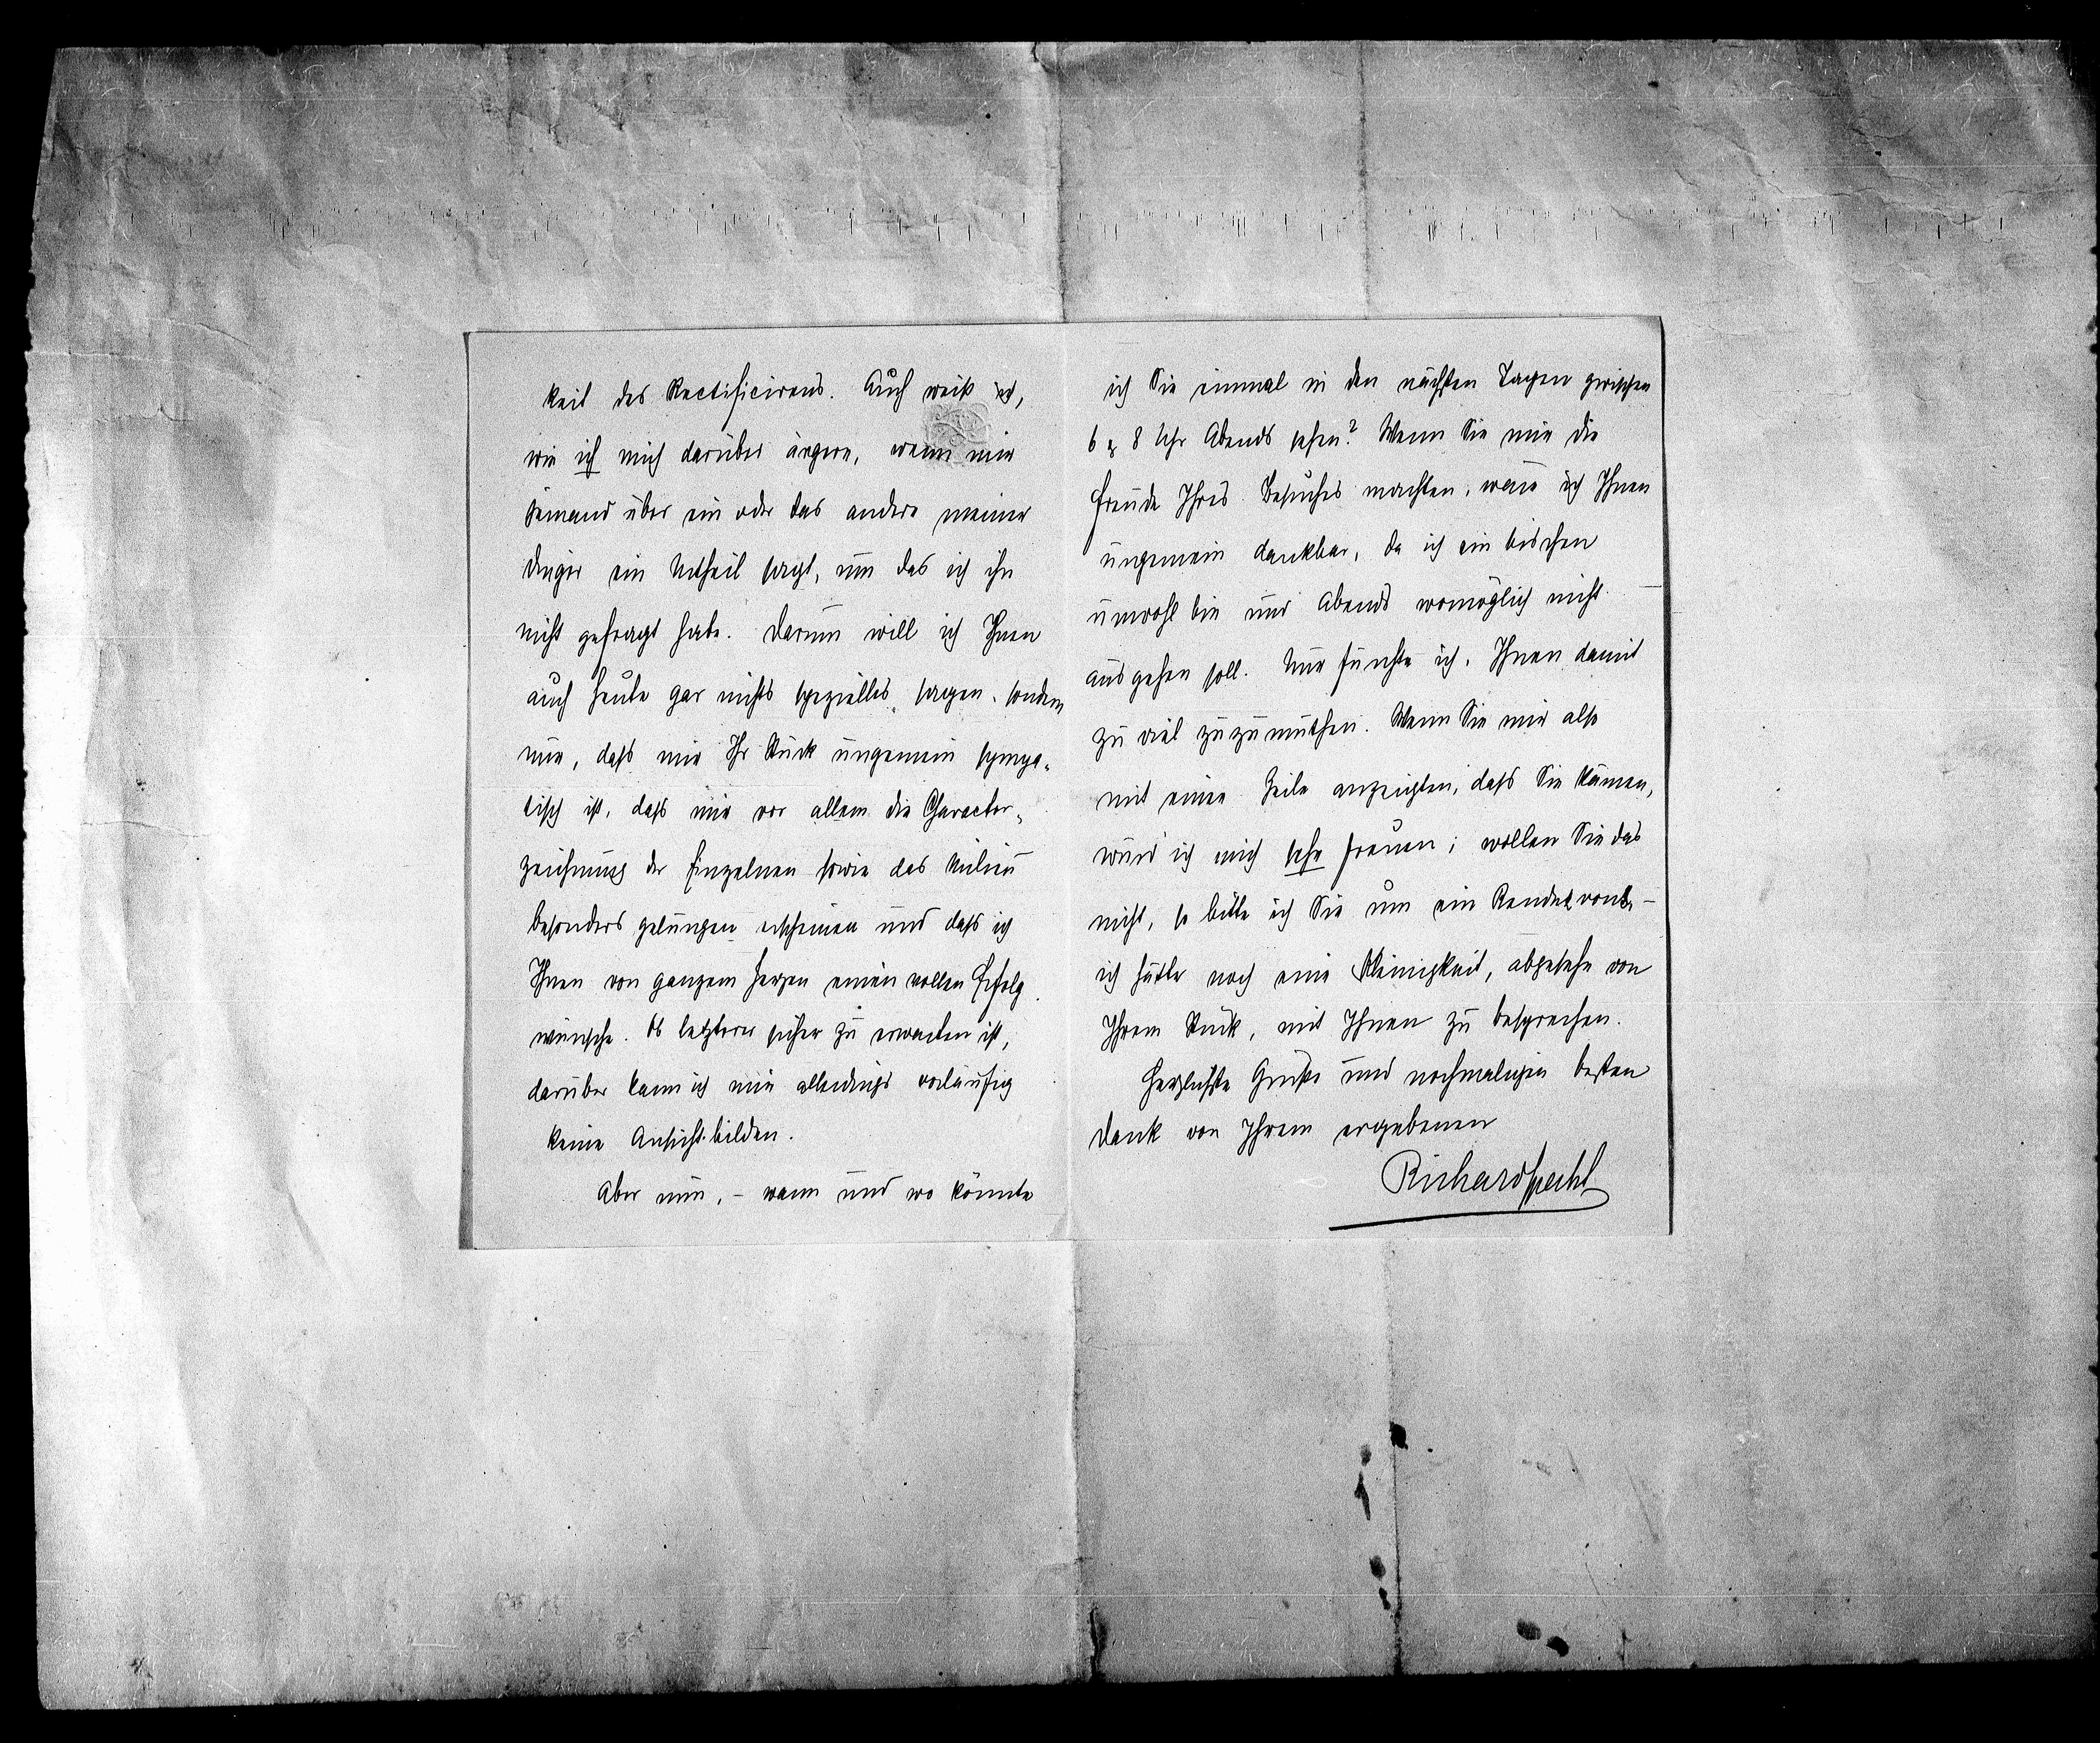 keit des Rectificirens. Auch weiß ich,
wie ich mich darüber ärgere, wenn mir
Jemand über ein oder das andere meiner
Dinger ein Urtheil sagt, um das ich ihn
nicht gefragt habe. Darum will ich Ihnen
auch heute gar nichts spezielles sagen, sondern
nur, dass mir Ihr Stück ungemein sympa-
tisch ist, dass mir vor allem die Character-
zeichnung der Einzelnen sowie das Milieu
besonders gelungen erscheinen und dass ich
Ihnen von ganzem Herzen einen vollen Erfolg
wünsche. Ob letzterer sicher zu erwarten ist,
darüber kann ich mir allerdings vorläufig
keine Ansicht bilden.
Aber nun, – wann und wo könnte
ich Sie einmal in den nächsten Tagen zwischen
6 & 8 Uhr Abends sehen? Wenn Sie mir die
Freude Ihres Besuches machten, wäre ich Ihnen
ungemein dankbar, da ich ein bischen
unwohl bin und Abends womöglich nicht
ausgehen soll. Nur fürchte ich, Ihnen damit
zu viel zuzumuthen. Wenn Sie mir also
mit einer Zeile anzeigten, dass Sie kämen,
würd ich mich sehr freuen; wollen Sie das
nicht, so bitte ich Sie um ein Rendezvous, –
ich hätte noch eine Kleinigkeit, abgesehn von
Ihrem Stück, mit Ihnen zu besprechen.
Herzlichste Grüße und nochmaligen besten
Dank von Ihrem ergebenen
Richard Specht